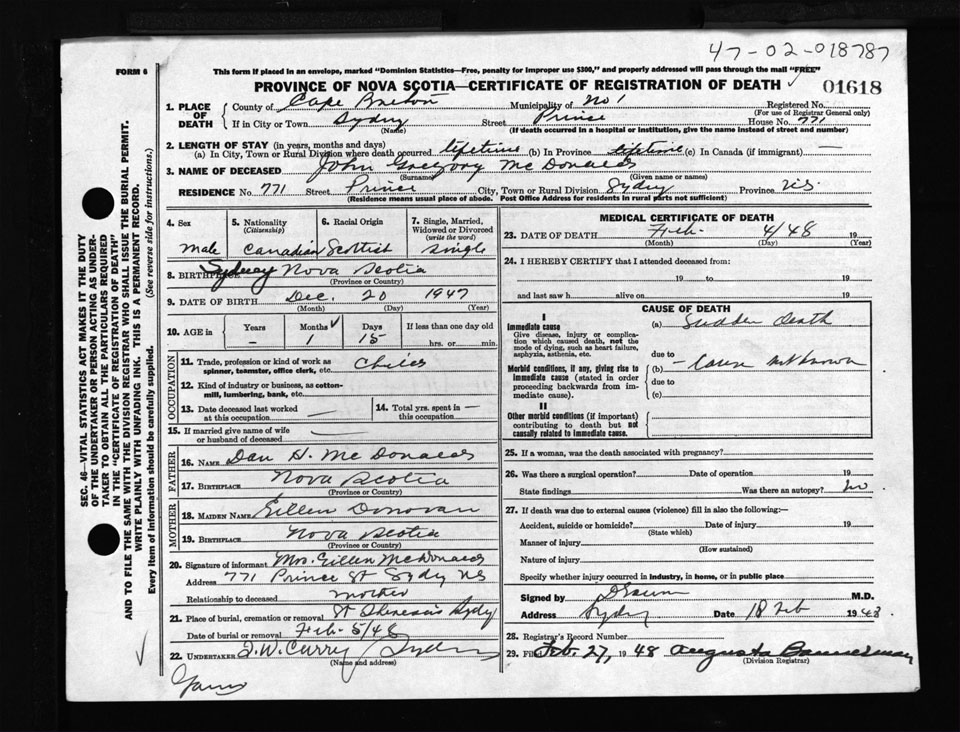 47-02-018787
FORM 6
This form if placed in an envelope, marked "Dominion Statistics—Free, penalty for improper use $300," and properly addressed will pass through the mail "FREE"
PROVINCE OF NOVA SCOTIA—CERTIFICATE OF REGISTRATION OF DEATH
01618
1. PLACE OF DEATH
County of Cape Breton Municipality of No 1 Registered No.
(For use of Registrar General only)
If in City or Town Sydney Street Prince House No. 771
(Name) (If death occurred in a hospital or institution, give the name instead of street and number)
2. LENGTH OF STAY (in years, months and days)
(a) In City, Town or Rural Division where death occurred lifetime (b) In Province lifetime (c) In Canada (if immigrant) —
3. NAME OF DECEASED John Gregory McDonald
(Surname) (Given name or names)
RESIDENCE No. 771 Street Prince City, Town or Rural Division Sydney Province N.S.
(Residence means usual place of abode. Post Office Address for residents in rural parts not sufficient)
4. Sex
Male
5. Nationality
(Citizenship)
Canadian
6. Racial Origin
Scottish
7. Single, Married,
Widowed or Divorced
(write the word)
Single
8. BIRTHPLACE Sydney Nova Scotia
(Province or Country)
9. DATE OF BIRTH Dec. 20 1947
(Month) (Day) (Year)
10. AGE in
Years Months Days If less than one day old
– 1 15 hrs. or min.
OCCUPATION
11. Trade, profession or kind of work as
spinner, teamster, office clerk, etc. Child
12. Kind of industry or business, as cotton-
mill, lumbering, bank, etc.
13. Date deceased last worked
at this occupation —
14. Total yrs. spent in
this occupation —
15. If married give name of wife
or husband of deceased —
FATHER
16. NAME Dan H. McDonald
17. BIRTHPLACE Nova Scotia
(Province or Country)
MOTHER
18. MAIDEN NAME Eillen Donovan
19. BIRTHPLACE Nova Scotia
(Province or Country)
20. Signature of informant Mrs. Eillen McDonald
Address 771 Prince St Sydney NS
Relationship to deceased mother
21. Place of burial, cremation or removal Sydney
Date of burial or removal Feb. 5/48
22. UNDERTAKER T.W. Curry Sydney
(Name and address)
MEDICAL CERTIFICATE OF DEATH
23. DATE OF DEATH Feb. 4/48
(Month) (Day) (Year)
24. I HEREBY CERTIFY that I attended deceased from:
19 to 19
and last saw h alive on 19
CAUSE OF DEATH
I
Immediate cause
Give disease, injury or complica-
tion which caused death, not the
mode of dying, such as heart failure,
asphyxia, asthenia, etc.
(a) Sudden death
due to
Morbid conditions, if any, giving rise to
immediate cause (stated in order
proceeding backwards from im-
mediate cause).
(b) – Cause unknown
due to
(c)
II
Other morbid conditions (if important)
contributing to death but not
causally related to immediate cause.
25. If a woman, was the death associated with pregnancy?
26. Was there a surgical operation? Date of operation 19
State findings Was there an autopsy? no
27. If death was due to external causes (violence) fill in also the following:—
Accident, suicide or homicide? Date of injury 19
(State which)
Manner of injury
(How sustained)
Nature of injury
Specify whether injury occurred in industry, in home, or in public place
Signed by M.D.
Address Sydney Date 18 Feb 1948
28. Registrar's Record Number
29. Filed Feb. 27, 1948 Augusta Bannerman
(Division Registrar)
SEC. 46—VITAL STATISTICS ACT MAKES IT THE DUTY
OF THE UNDERTAKER OR PERSON ACTING AS UNDER-
TAKER TO OBTAIN ALL THE PARTICULARS REQUIRED
IN THE "CERTIFICATE OF REGISTRATION OF DEATH"
AND TO FILE THE SAME WITH THE DIVISION REGISTRAR WHO SHALL ISSUE THE BURIAL PERMIT.
WRITE PLAINLY WITH UNFADING INK. THIS IS A PERMANENT RECORD.
Every item of information should be carefully supplied. (See reverse side for instructions.)